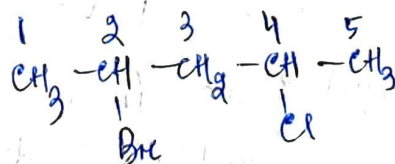 1 2 3 4 5
CH3 - CH - CH2 - CH - CH3
Br Cl